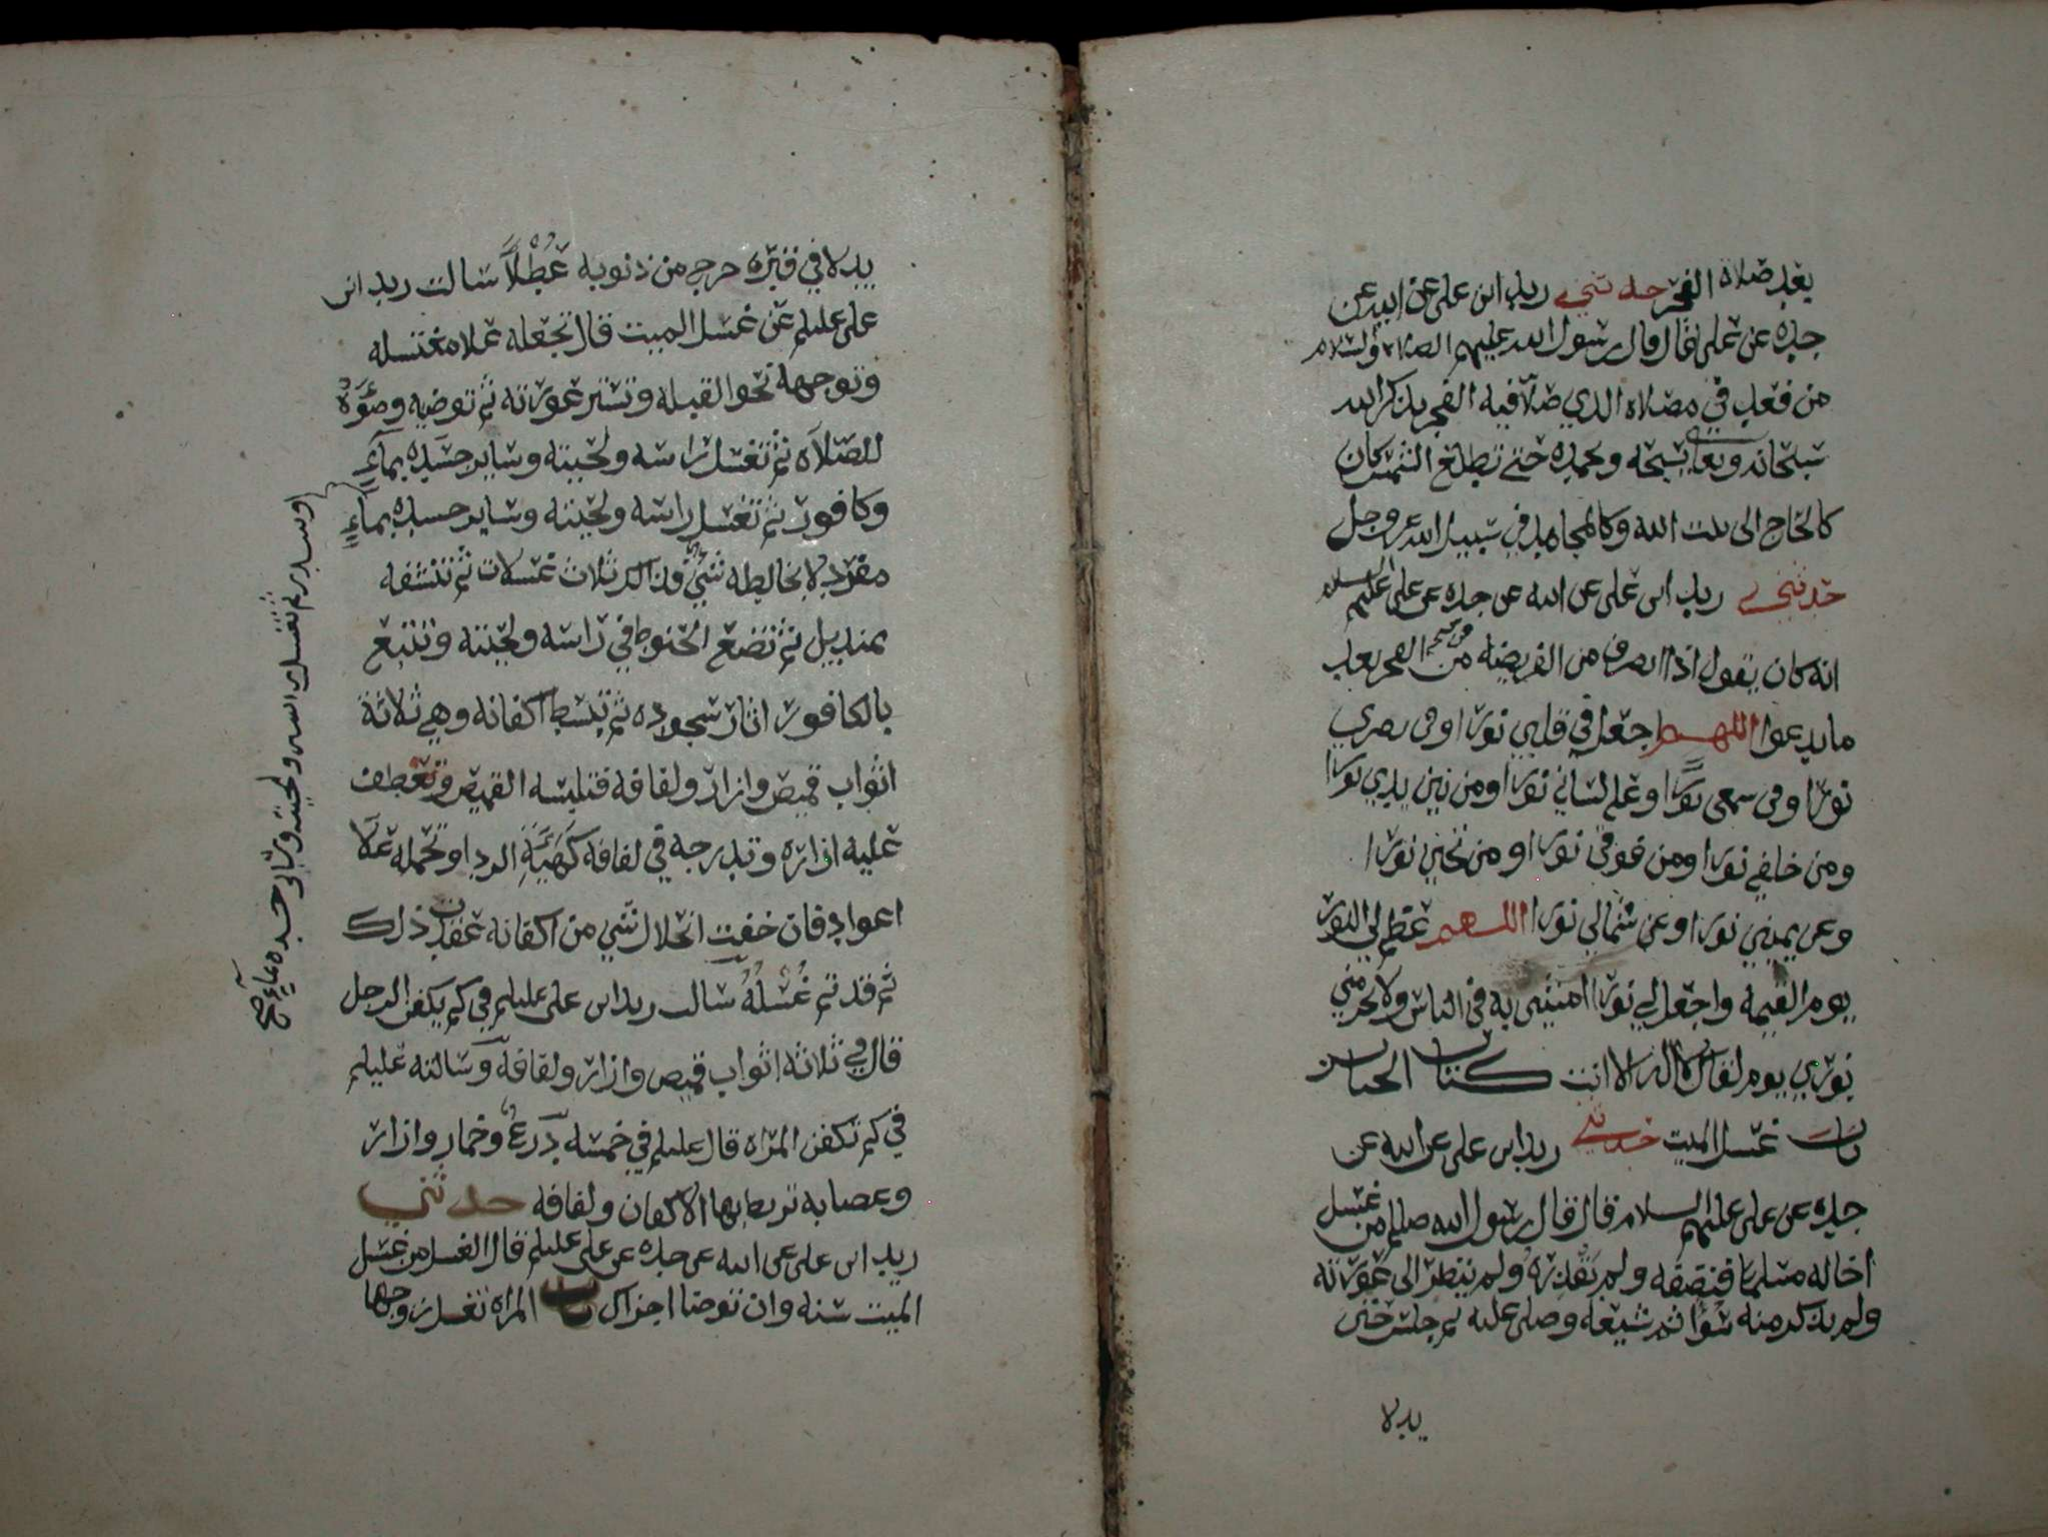 بعد صلاة الفجر حدثني زيد ابن علي عن ابيه عن
جده عن علي قال قال رسول الله عليهم الصلاة والسلام
من قعد في مصلاه الذي صلا فيه الفجر يذكر الله
سبحانه وتعالى يسبحه ويحمده حتى تطلع الشمس كان
كالحاج الى بيت الله وكالمجاهد في سبيل الله عز وجل
حدثني زيد ابن علي عن ابيه عن جده عن علي عليهم السلام
انه كان يقول اذا انصرف من الفريضه من الفجر بعد
ما يدعوا اللهم اجعل في قلبي نورا وفي بصري
نورا وفي سمعي نورا وعلى لساني نورا ومن بين يدي نورا
ومن خلفي نورا ومن فوقي نورا ومن تحتي نورا
وعن يميني نورا وعن شمالي نورا اللهم عظم لي النور
يوم القيمة واجعل لي نورا امشي به في الناس ولا تحرمني
نوري يوم لقاك لا اله الا انت كتاب الجنائز
باب غسل الميت حدثني زيد ابن علي عن ابيه عن
جده عن علي عليهم السلام قال قال رسول الله صلعم من غسل
اخا له مسلما فنضفه ولم يقذره ولم ينظر الى عورته
ولم يذكر منه سوا ثم شيعه وصلى عليه ثم جلس حتى
يدلا
يدلا في قبره خرج من ذنوبه عطلا سالت زيد ابن
علي عليلم عن غسل الميت قال تجعله علا مغتسله
وتوجهه نحو القبله وتستر عورته ثم توضيه وضوءه
للصلاه ثم تغسل راسه ولحيته وساير جسده بماء
وسدر ثم تغسل راسه ولحيته وساير جسده بماء صح
وكافور ثم تغسل راسه ولحيته وساير جسده بماء
مفرد لا يخالطه شي وذالك ثلاث غسلات ثم تنشفه
بمنديل ثم تضع الحنوط في راسه ولحيته وتتبع
بالكافور اثار سجوده ثم تبسط اكفانه وهي ثلاثة
اثواب قميص وازار ولفافه فتلبسه القميص وتعطف
عليه ازاره وتدرجه في لفافه كهيئة الردا وتحمله علا
اعواد فان خفت انحلال شي من اكفانه عقدت ذلك
ثم قد تم غسله سالت زيد ابن علي عليلم في كم يكفن الرجل
قال في ثلاثه اثواب قميص وازار ولفافه وسالته عليلم
في كم تكفن المراه قال عليلم في خمسه درع وخمار وازار
وعصابه تربط بها الاكفان ولفافه حدثني
زيد ابن علي عن ابيه عن جده عن علي عليلم قال الغسل من غسل
الميت سنه وان توضا اجزاك باب المراه تغسل زوجها